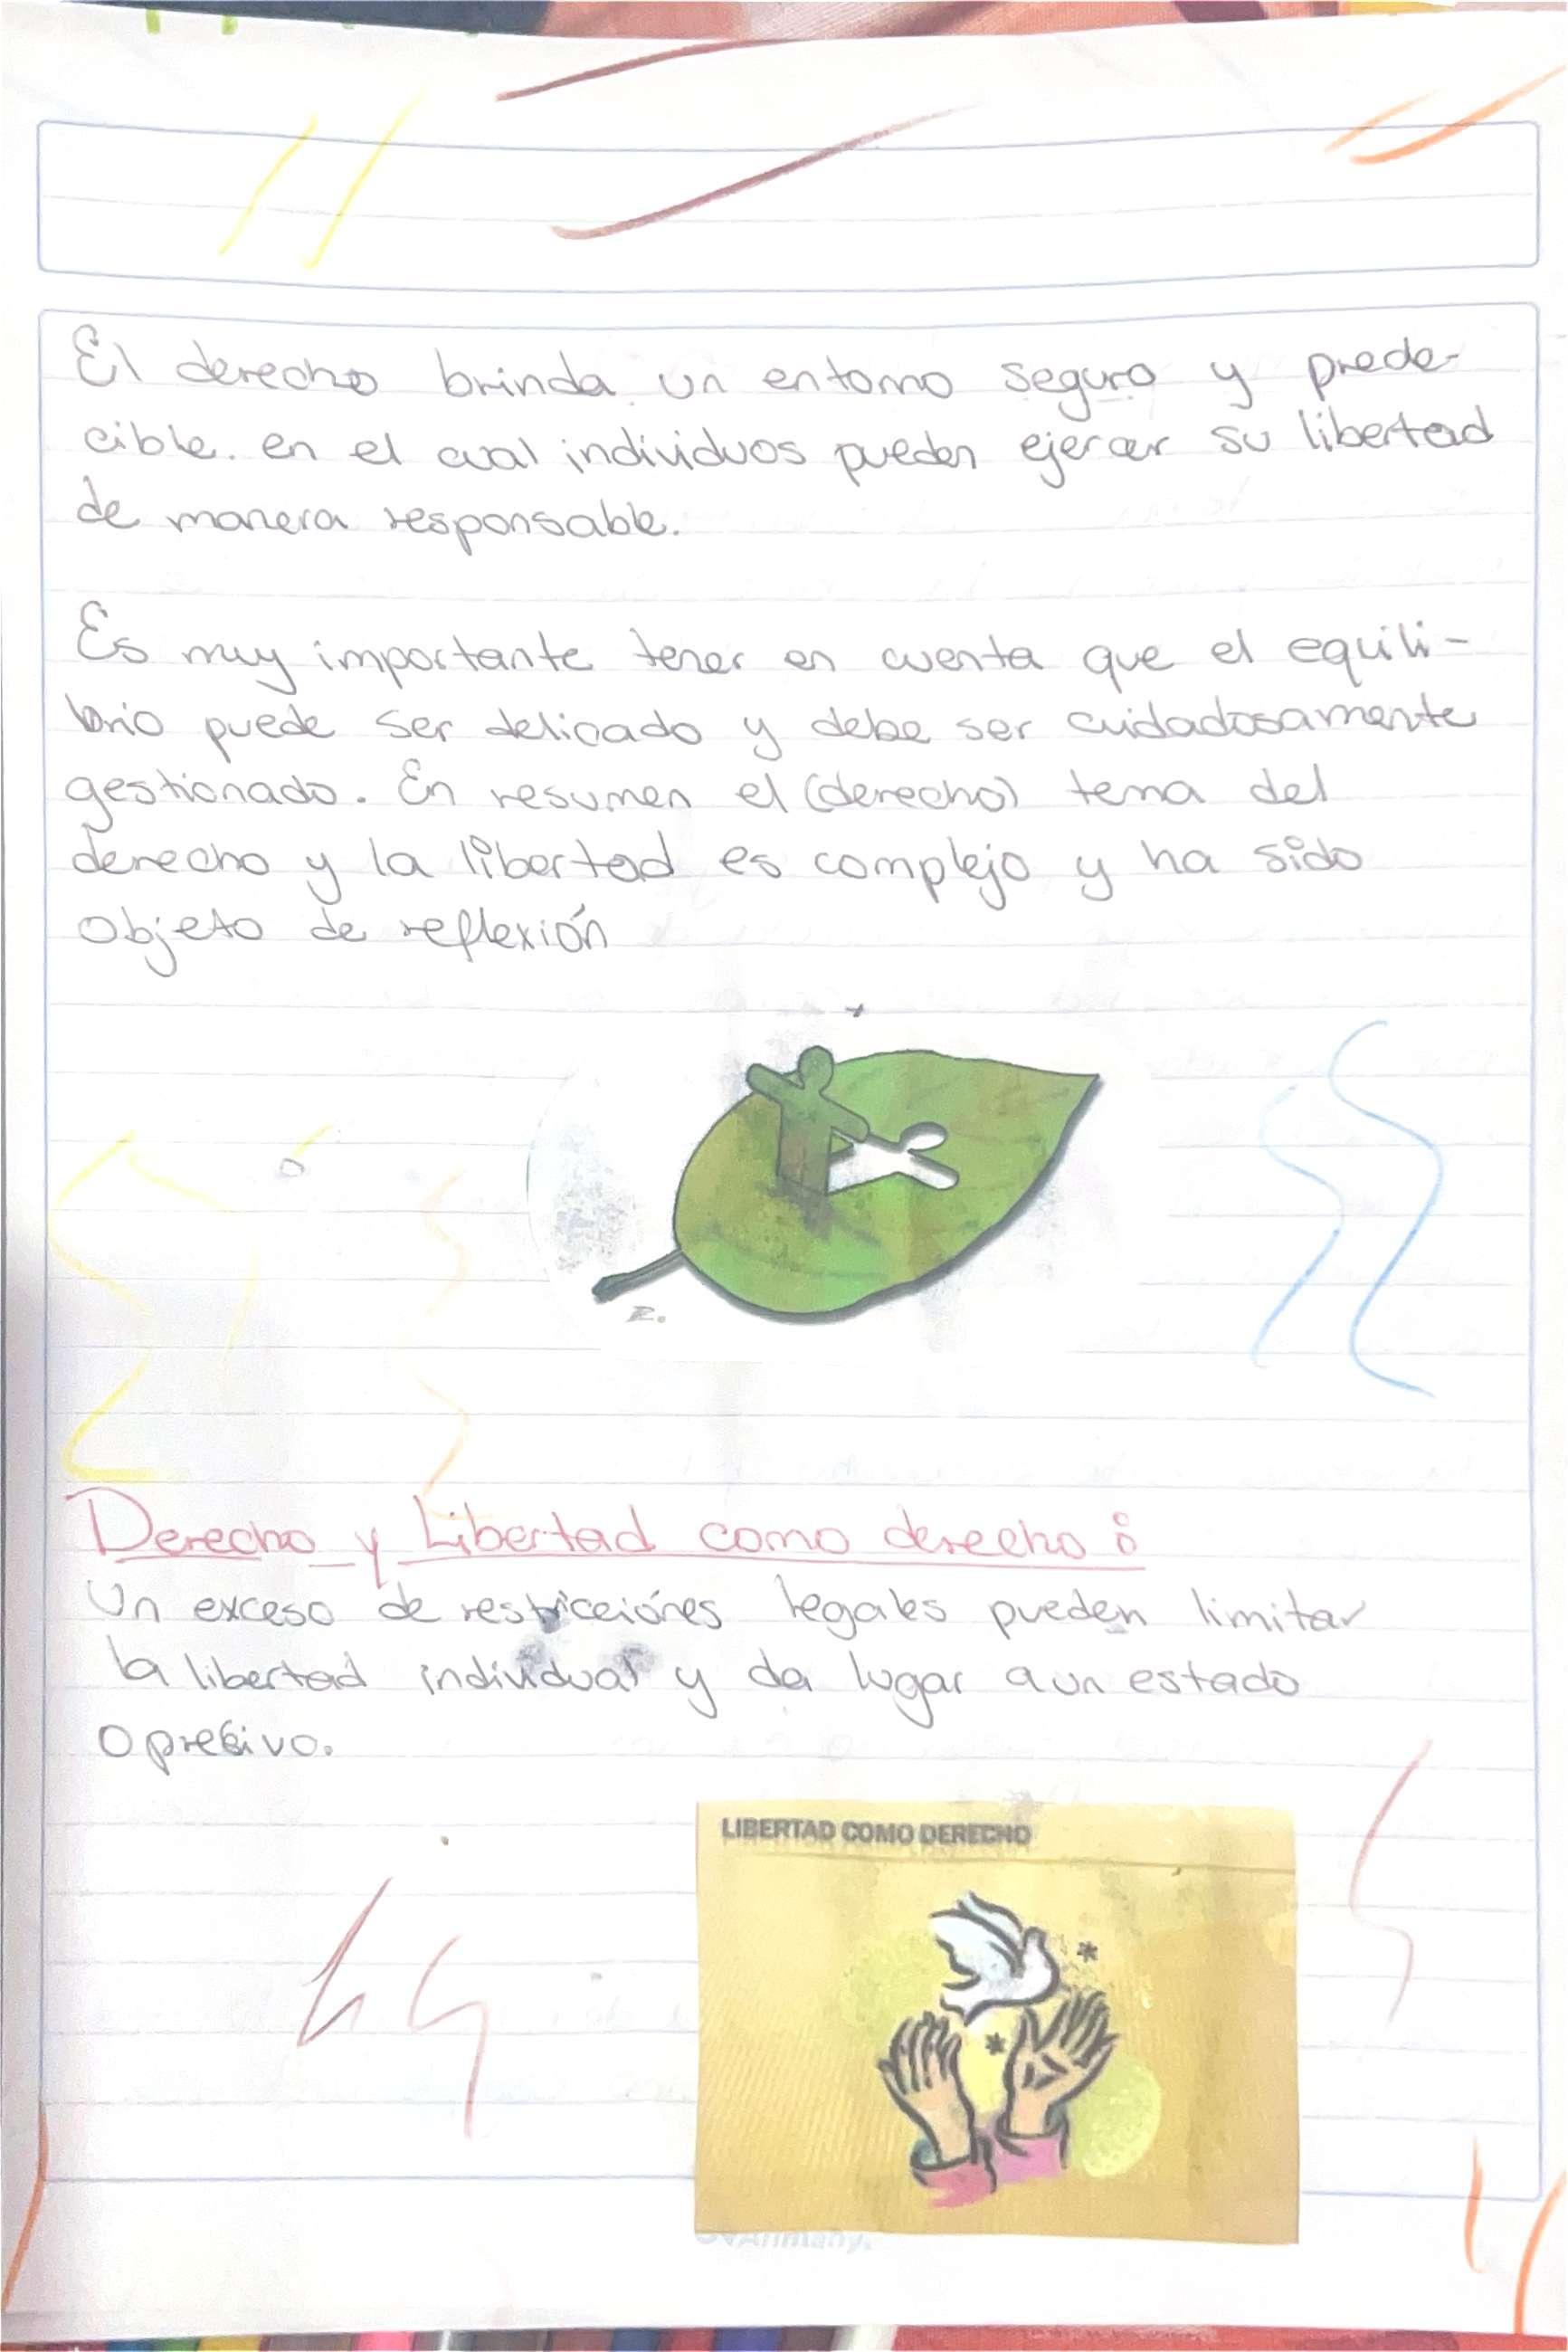 El derecho brinda un entorno seguro y prede-
cible. en el cual individuos pueden ejercer su libertad
de manera responsable.
Es muy importante tener en cuenta que el equili-
brio puede ser delicado y debe ser cuidadosamente
gestionado. En resumen el (derecho) tema del
derecho y la libertad es complejo y ha sido
objeto de reflexión
Derecho y Libertad como derecho:
Un exceso de restricciónes legales pueden limitar
la libertad individual y da lugar a un estado
opresivo.
LIBERTAD COMO DERECHO